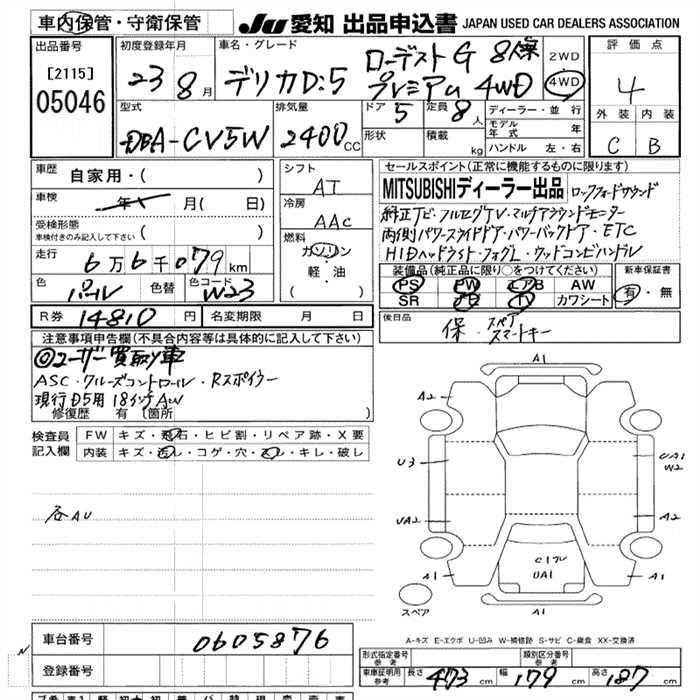 車内保管・守衛保管
JU 愛知 出品申込書 JAPAN USED CAR DEALERS ASSOCIATION
出品番号 [2115] 05046
初度登録年月 23 8月
車名・グレード デリカD:5 ローデスト G プレミアム 4WD 8人乗
2WD 4WD
評価点 4
外装 C 内装 B
型式 DBA-CV5W
排気量 2400cc
ドア 5 定員 8人
形状 積載 kg
ディーラー・並行
モデル年式 年
ハンドル 左・右
車歴 自家用・( )
車検 年 月( 日)
受検形態 ( )
車検付きのみ記入して下さい
走行 6万6千079km
色 パール 色替 色コード W23
シフト AT
冷房 AAC
燃料 ガソリン 軽・油
セールスポイント(正常に機能するものに限ります)
MITSUBISHIディーラー出品 ロックフォードサウンド
純正ナビ・フルセグTV・マルチアラウンドモニター
両側パワースライドドア・パワーバックドア・ETC
HIDヘッドライト・フォグL・ウッドコンビハンドル
装備品(純正品に限り○をつけてください) 新車保証書
PS PW エアB AW 有・無
SR ナビ TV カワシート
後日品 保・スペアスマートキー
R券 14810円 名変期限 月 日
注意事項申告欄(不具合内容等は具体的に記入して下さい)
◎ユーザー買取車
ASC・クルーズコントロール・Rスポイラー
現行D5用18インチAW
修復歴 有 [箇所 )
検査員記入欄
FW キズ・飛石・ヒビ割・リペア跡・X要
内装 キズ・汚レ・コゲ・穴・スレ・キレ・破レ
各AU
A1
A2
U3
UA1
W2
UA2
A2
A1
C1
UA1
A1
スペア
A1
A-キズ E-エクボ U-凹み W-補修跡 S-サビ C-腐食 XX-交換済
車台番号 0605876
登録番号
形式指定番号 参考 類別区分番号 参考
車庫証明用 参考 長さ 473cm 幅 179cm 高さ 187cm